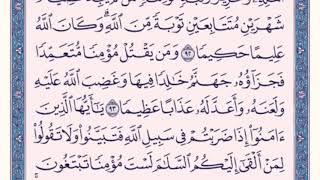 شَهْرَيْنِ مُتَتَابِعَيْنِ تَوْبَةً مِّنَ ٱللَّهِ ۗ وَكَانَ ٱللَّهُ
عَلِيمًا حَكِيمًا ٩٢ وَمَن يَقْتُلْ مُؤْمِنًا مُّتَعَمِّدًا
فَجَزَآؤُهُۥ جَهَنَّمُ خَٰلِدًا فِيهَا وَغَضِبَ ٱللَّهُ عَلَيْهِ
وَلَعَنَهُۥ وَأَعَدَّ لَهُۥ عَذَابًا عَظِيمًا ٩٣ يَٰٓأَيُّهَا ٱلَّذِينَ
ءَامَنُوٓا۟ إِذَا ضَرَبْتُمْ فِى سَبِيلِ ٱللَّهِ فَتَبَيَّنُوا۟ وَلَا تَقُولُوا۟
لِمَنْ أَلْقَىٰٓ إِلَيْكُمُ ٱلسَّلَٰمَ لَسْتَ مُؤْمِنًا تَبْتَغُونَ